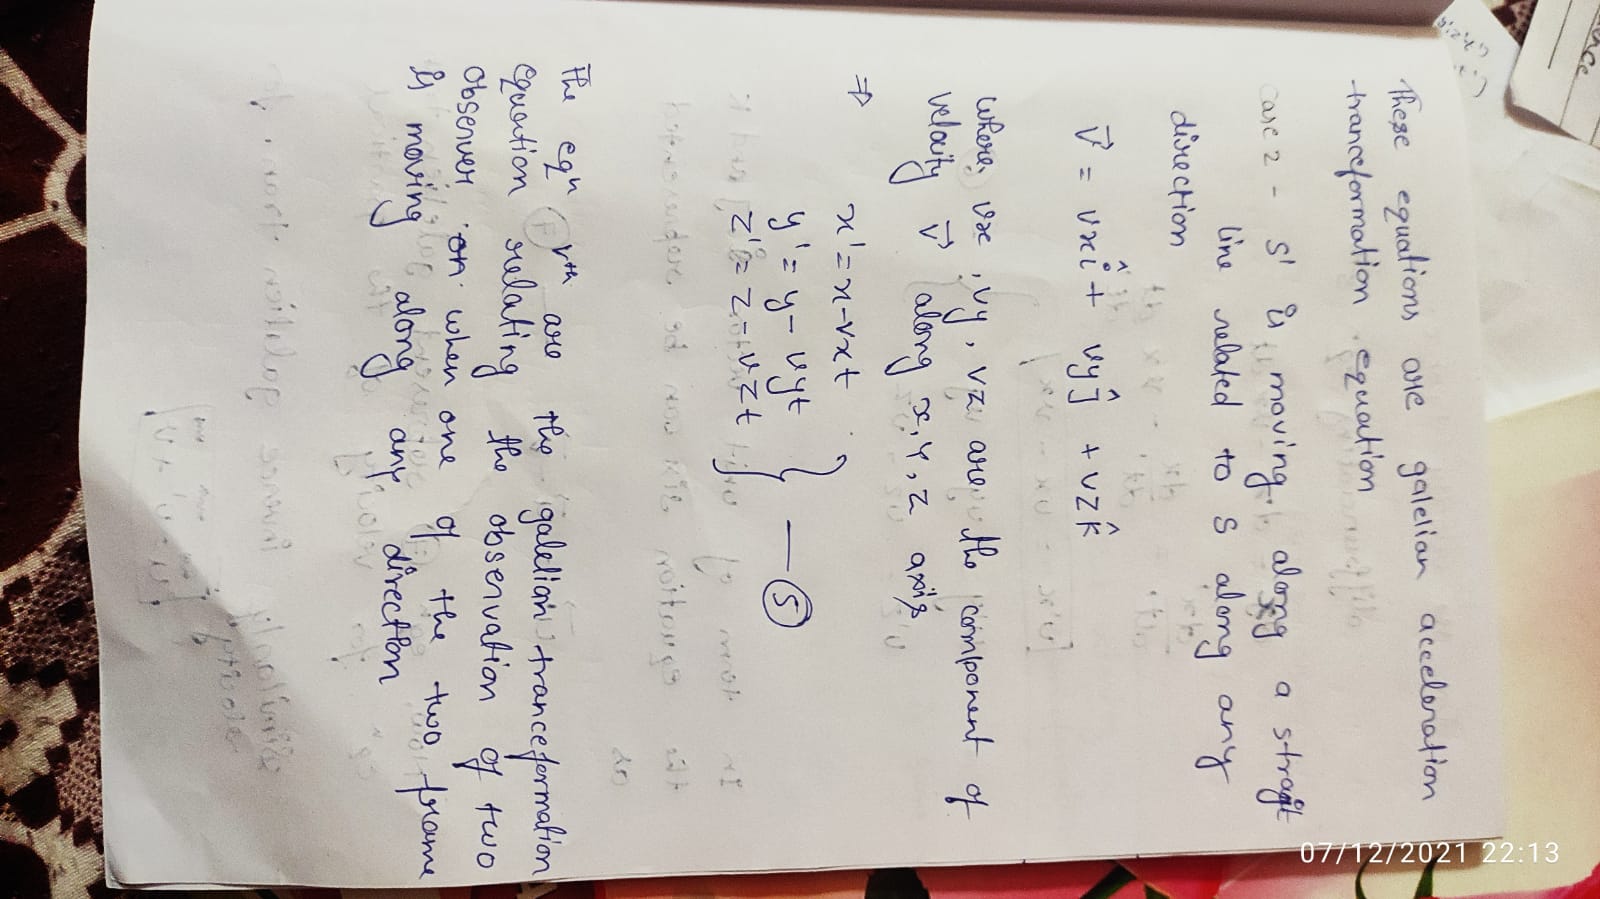 These equations are galelian acceleration
tranceformation equation
case 2 - S' is moving along a straight
line related to S along any
direction
V⃗ = vxî + vyĵ + vzk̂
where vx, vy, vz are the component of
velocity V⃗ along x, y, z axis
⇒ x' = x - vxt
y' = y - vyt
z' = z - vzt } — (5)
The eqn vth are the galelian tranceformation
equation relating the observation of two
observer on when one of the two frame
is moving along any direction
07/12/2021 22:13